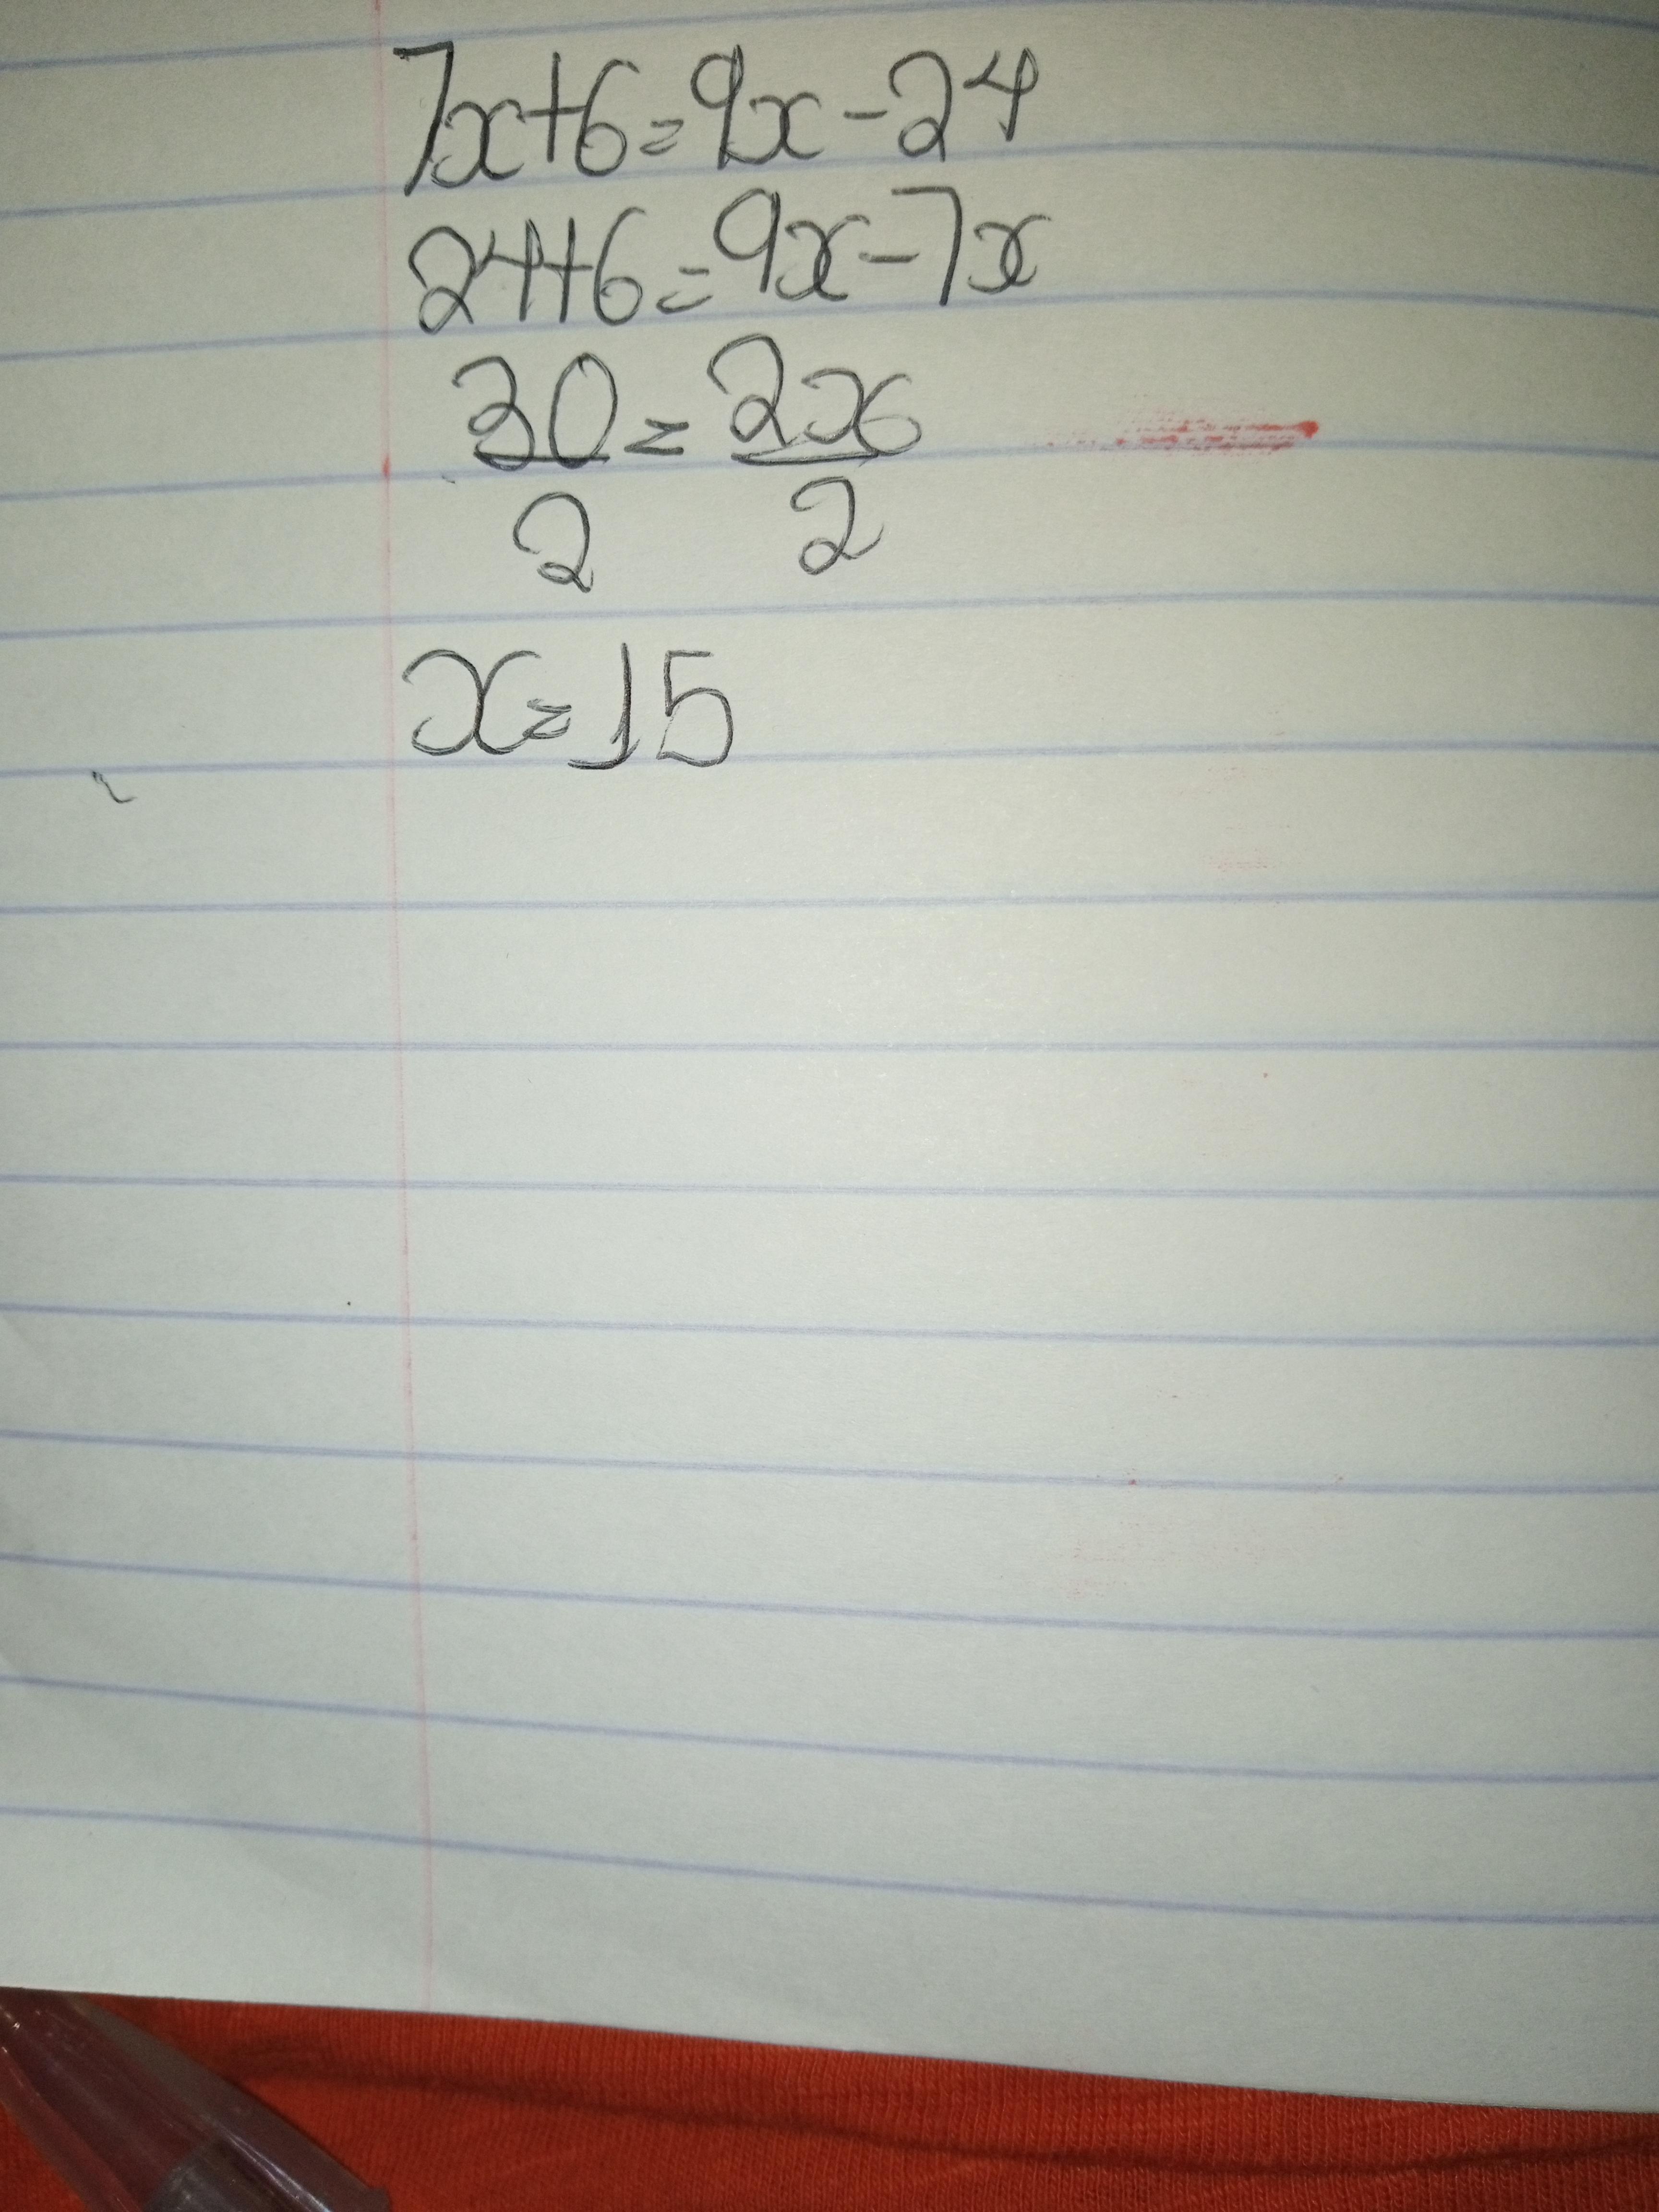 7x+6=9x-24
24+6=9x-7x
30=2x
2 2
x=15